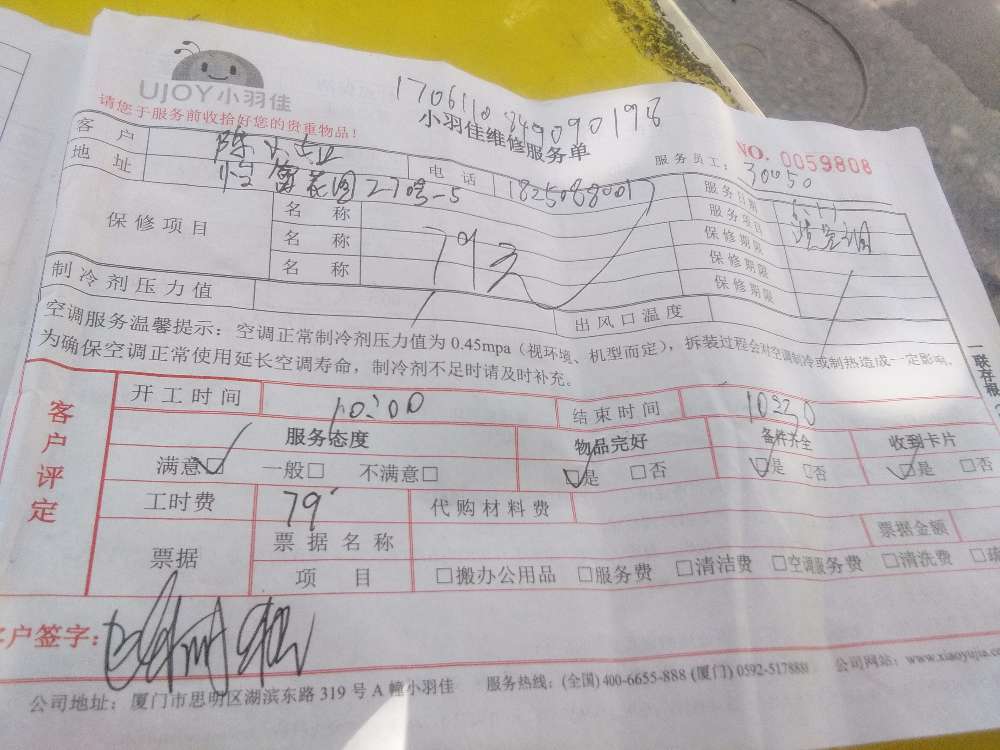 UJOY小羽佳
请您于服务前收拾好您的贵重物品！
小羽佳维修服务单
NO. 0059808
服务员工： 30050
客户 陈
电话 1825088001
服务日期
地址 花园27号-5
服务项目 洗空调
保修项目 名称 保修期限
79元
名称 保修期限
名称 保修期限
制冷剂压力值
出风口温度
空调服务温馨提示：空调正常制冷剂压力值为 0.45mpa（视环境、机型而定），拆装过程会对空调制冷或制热造成一定影响，
为确保空调正常使用延长空调寿命，制冷剂不足时请及时补充。
一联存根
客户评定
开工时间 10:00
结束时间 1030
服务态度 物品完好 备件齐全 收到卡片
满意□ 一般□ 不满意□ □是 □否 □是 □否 □是 □否
工时费 79 代购材料费
票据 票据名称 票据金额
项目 □搬办公用品 □服务费 □清洁费 □空调服务费 □清洗费
客户签字：
公司地址：厦门市思明区湖滨东路 319 号 A 幢小羽佳 服务热线：(全国) 400-6655-888 (厦门) 0592-517888 公司网站：www.xiaoyujia